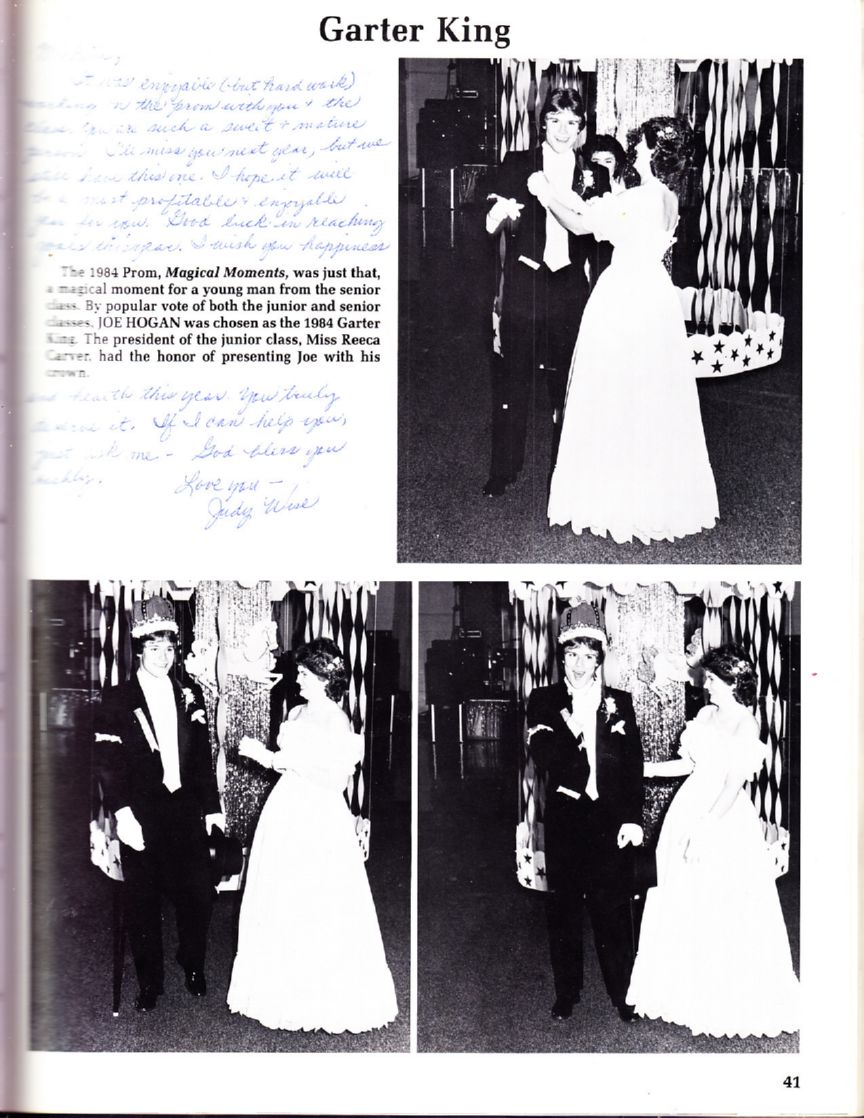 Garter King
It was enjoyable (but hard work)
working on the prom with you & the
class. You are such a sweet & mature
person. I'll miss you next year, but we
still have this one. I hope it will
be a most profitable & enjoyable
year for you. Good luck in reaching
goals this year. I wish you happiness
The 1984 Prom, Magical Moments, was just that,
a magical moment for a young man from the senior
class. By popular vote of both the junior and senior
classes, JOE HOGAN was chosen as the 1984 Garter
King. The president of the junior class, Miss Reeca
Carver, had the honor of presenting Joe with his
crown.
health this year. You truly
deserve it. If I can help you,
just ask me - God bless you
Love you -
Judy Wise
41